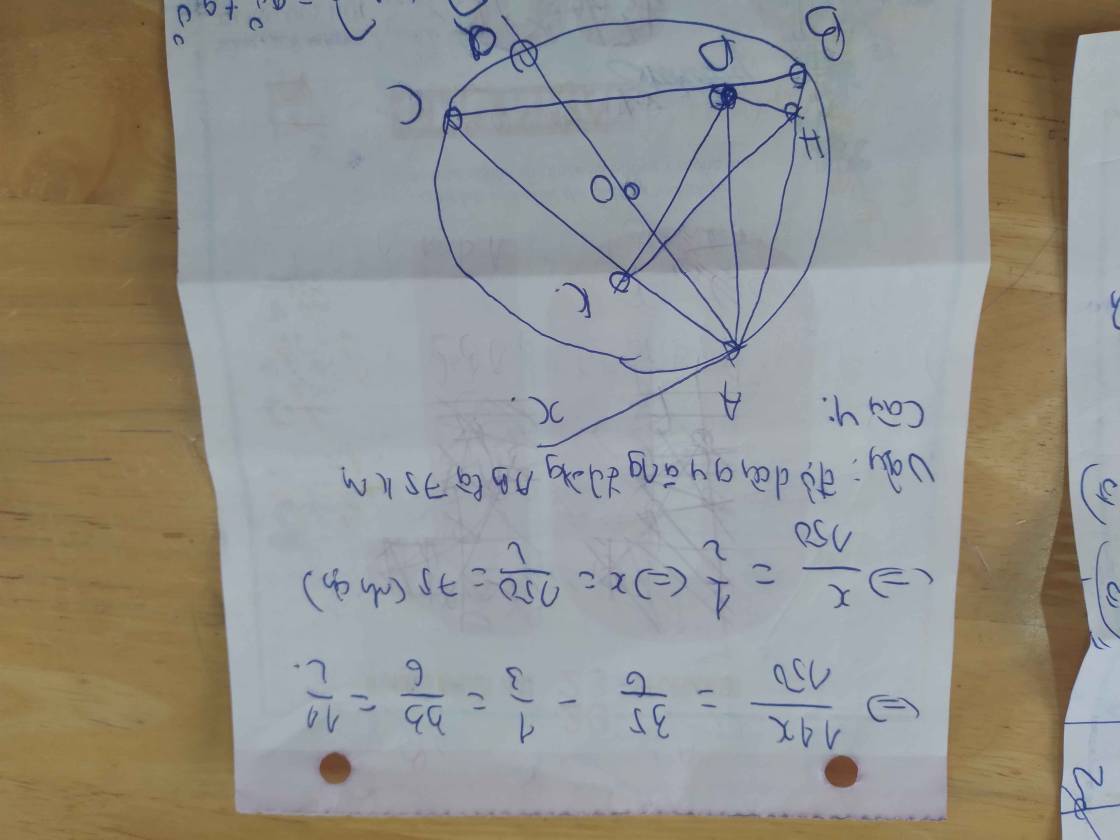 ⇔ 11x/150 = 35/6 - 1/3 = 33/6 = 11/2
⇔ x/150 = 1/2 ⇔ x = 150/2 = 75 (nhận)
Vậy: độ dài quãng đường AB là 75 km
Câu 4:
A
x
K
O
I
C
D
B